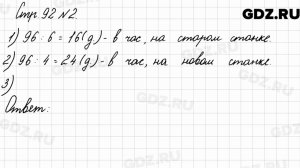 GDZ.RU
Стр. 92 №2.
1) 96 : 6 = 16 (д.) - в час, на старом станке.
2) 96 : 4 = 24 (д.) - в час, на новом станке.
3)
Ответ: